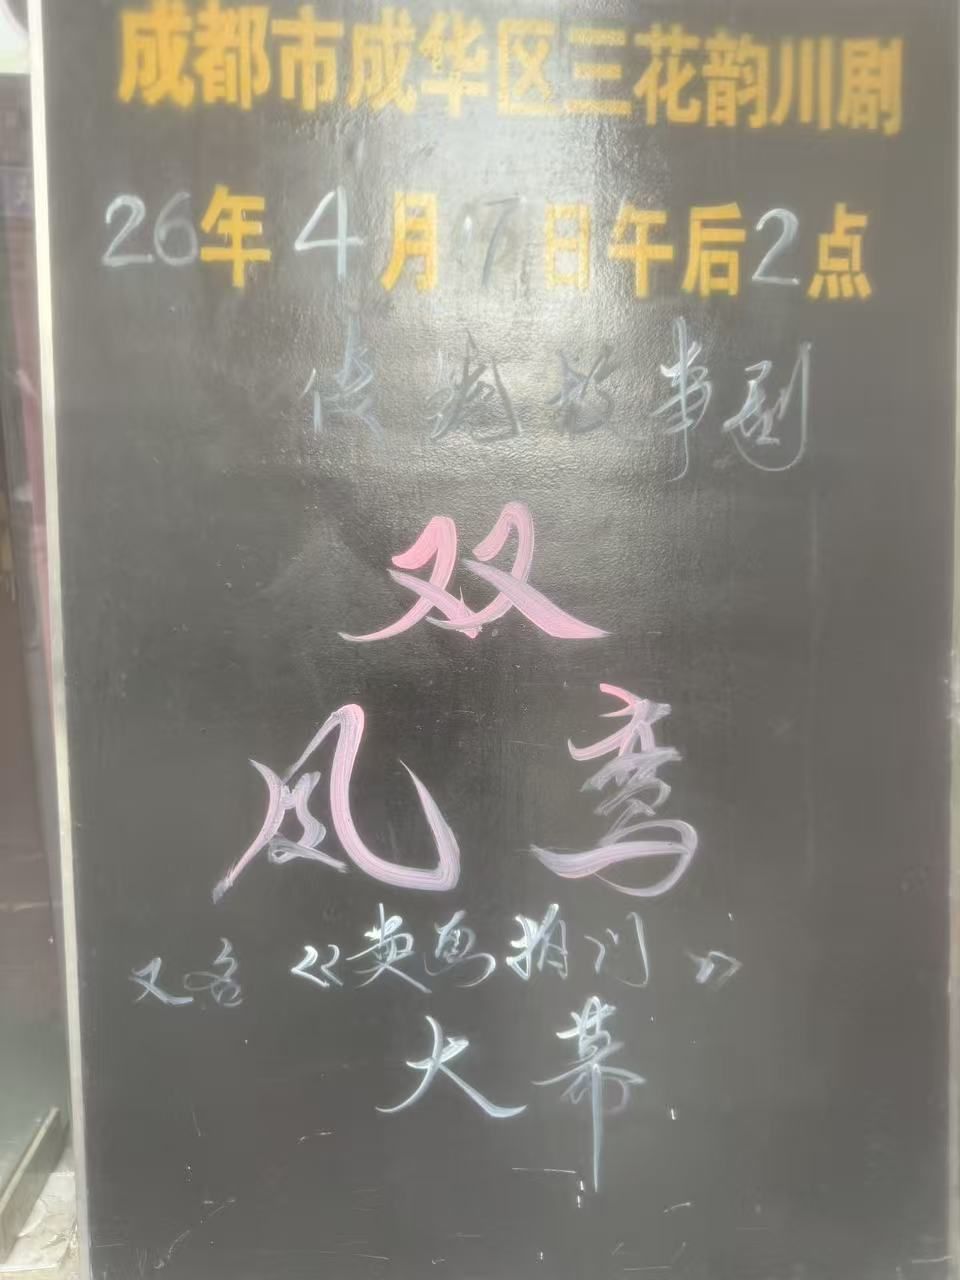 成都市成华区三花韵川剧
26年4月17日午后2点
传统故事剧
双
凤鸾
又名《黄马招川》
大幕